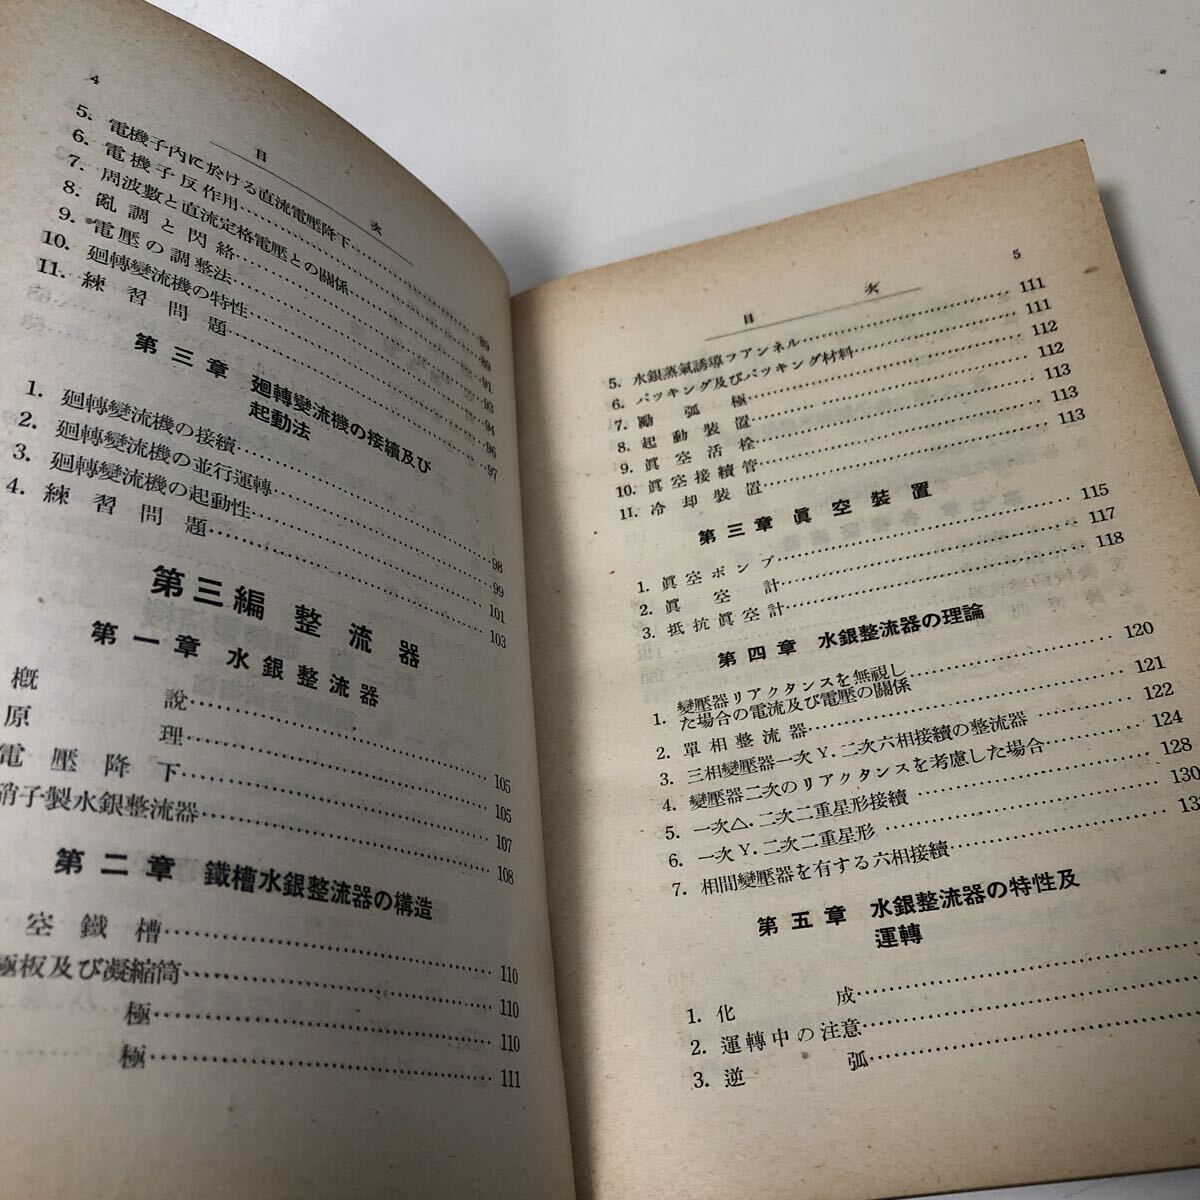 4
目次
5. 電機子內に於ける直流電壓降下……89
6. 電機子反作用……89
7. 周波數と直流定格電壓との關係……91
8. 亂調と閃絡……93
9. 電壓の調整法……94
10. 廻轉變流機の特性……96
11. 練習問題……97
第三章 廻轉變流機の接續及び
起動法
1. 廻轉變流機の接續……98
2. 廻轉變流機の並行運轉……99
3. 廻轉變流機の起動性……101
4. 練習問題……103
第三編 整流器
第一章 水銀整流器
概說……105
原理……105
電壓降下……107
硝子製水銀整流器……108
第二章 鐵槽水銀整流器の構造
空鐵槽……110
極板及び凝縮筒……110
極……110
極……111
5
目次
5. 水銀蒸氣誘導フアンネル……111
6. パッキング及びパッキング材料……111
7. 勵弧極……112
8. 起動裝置……112
9. 眞空活栓……113
10. 眞空接續管……113
11. 冷却裝置……113
第三章 眞空裝置
1. 眞空ポンプ……115
2. 眞空計……117
3. 抵抗眞空計……118
第四章 水銀整流器の理論
1. 變壓器リアクタンスを無視し
た場合の電流及び電壓の關係……120
2. 單相整流器……121
3. 三相變壓器一次Y.二次六相接續の整流器……122
4. 變壓器二次のリアクタンスを考慮した場合……124
5. 一次△.二次二重星形接續……128
6. 一次Y.二次二重星形……130
7. 相間變壓器を有する六相接續……13
第五章 水銀整流器の特性及
運轉
1. 化成……
2. 運轉中の注意……
3. 逆弧……